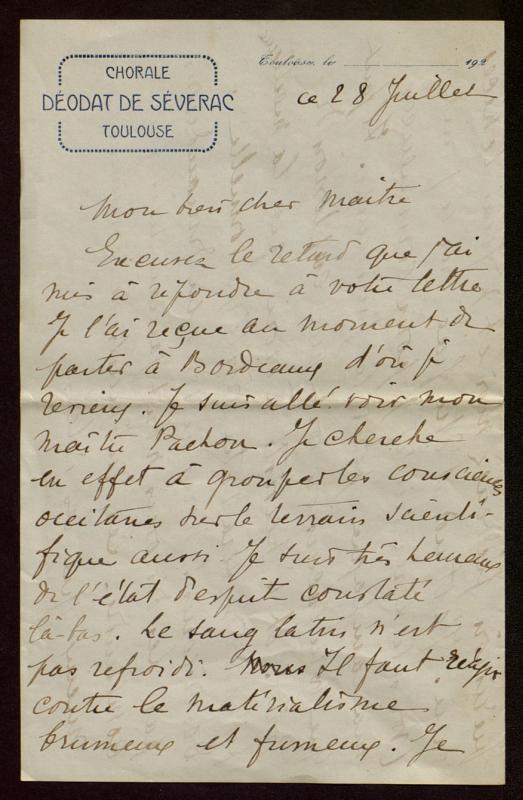 CHORALE
DÉODAT DE SÉVERAC
TOULOUSE
Toulouse, le 192
ce 28 Juillet
Mon très cher maître
Excusez le retard que j'ai
mis à répondre à votre lettre
Je l'ai reçue au moment de
partir à Bordeaux d'où je
reviens. Je suis allé voir mon
maître Pachon. Je cherche
en effet à grouper les consciences
occitanes sur le terrain scienti-
fique aussi. Je suis très heureux
de l'état d'esprit constaté
là-bas. Le sang latin n'est
pas refroidi. Nous Il faut réagir
contre le matérialisme
brumeux et fumeux. Je